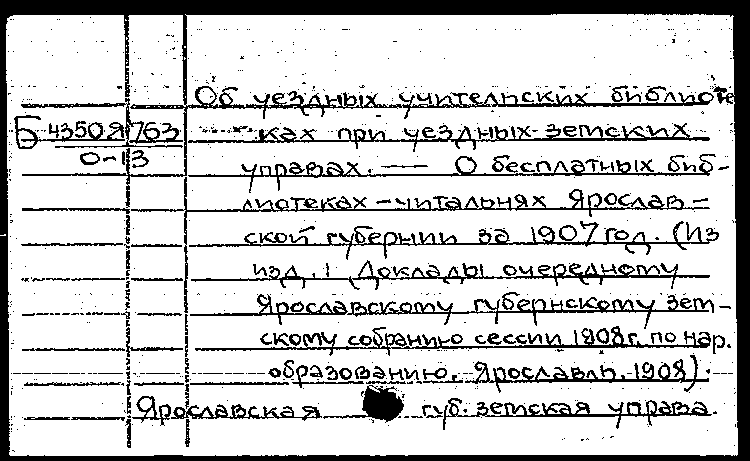 Об уездных учительских библиоте
Б 43508 763 ках при уездных земских
0-13
управах. — О бесплатных биб-
лиотеках-читальнях Ярослав-
ской губернии за 1907 год. (Из
изд.: Доклады очередному
Ярославскому губернскому зем-
скому собранию сессии 1908г. по нар.
образованию. Ярославль. 1908).
Ярославская губ. земская управа.